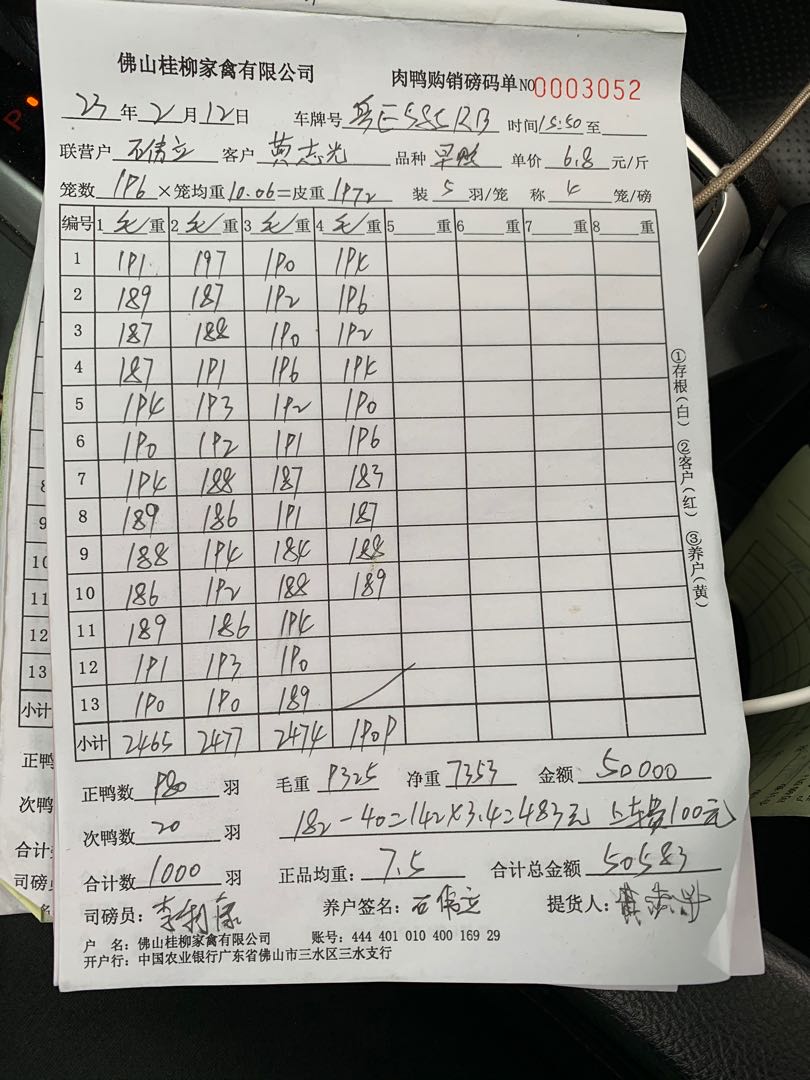 佛山桂柳家禽有限公司 肉鸭购销磅码单 NO0003052
23年2月12日 车牌号 时间15:50至
联营户 石伟立 客户 黄志光 品种 单价 6.8 元/斤
笼数 196 ×笼均重 10.06=皮重 1972 装 5 羽/笼 称 4 笼/磅
编号 1 毛/重 2 毛/重 3 毛/重 4 毛/重 5 重 6 重 7 重 8 重
1 191 197 190 194
2 189 187 192 196
3 187 188 190 192
4 187 191 196 194
5 194 193 192 190
6 190 192 191 196
7 194 188 187 183
8 189 186 191 187
9 188 194 184 188
10 186 192 188 189
11 189 186 194
12 191 193 190
13 190 190 189
小计 2465 2477 2474 1909
正鸭数 980 羽 毛重 9325 净重 7353 金额 50000
次鸭数 20 羽 182-40=142×3.4=483元 上车费100元
合计数 1000 羽 正品均重: 7.5 合计总金额 50583
司磅员: 养户签名: 石伟立 提货人:
户 名: 佛山桂柳家禽有限公司 账号: 444 401 010 400 169 29
开户行: 中国农业银行广东省佛山市三水区三水支行
①存根(白) ②客户(红) ③养户(黄)